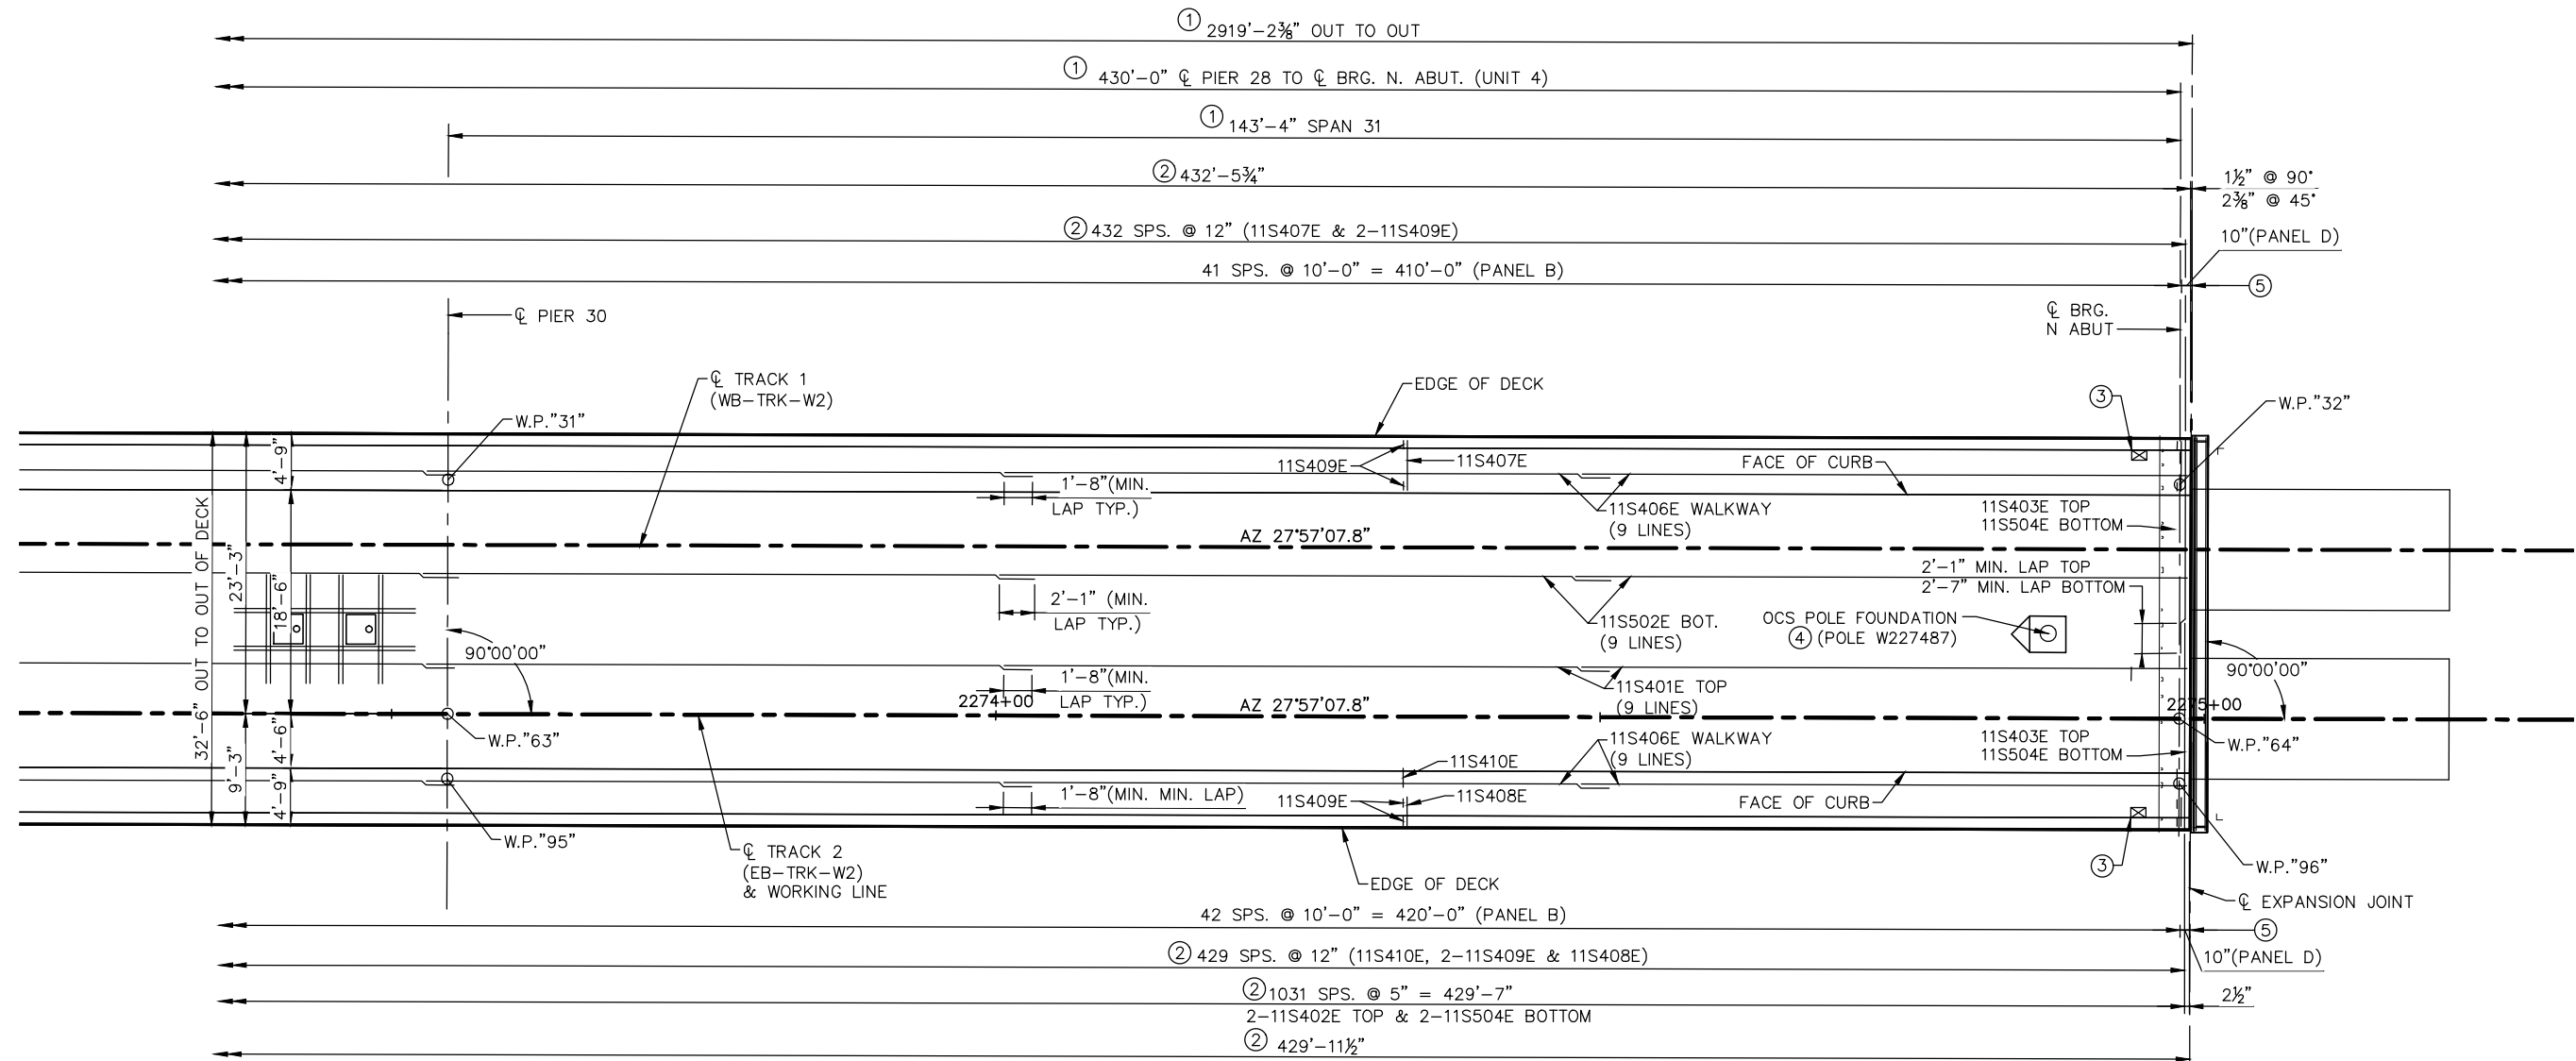 ① 2919'-2⅜" OUT TO OUT
① 430'-0" ℄ PIER 28 TO ℄ BRG. N. ABUT. (UNIT 4)
① 143'-4" SPAN 31
② 432'-5¾"
1½" @ 90°
2⅜" @ 45°
② 432 SPS. @ 12" (11S407E & 2-11S409E)
10"(PANEL D)
41 SPS. @ 10'-0" = 410'-0" (PANEL B)
⑤
℄ PIER 30
℄ BRG.
N ABUT
℄ TRACK 1
(WB-TRK-W2)
EDGE OF DECK
③
W.P."32"
W.P."31"
4'-9"
11S409E
11S407E
FACE OF CURB
1'-8"(MIN.
LAP TYP.)
11S406E WALKWAY
(9 LINES)
11S403E TOP
11S504E BOTTOM
AZ 27°57'07.8"
32'-6" OUT TO OUT OF DECK
23'-3"
18'-6"
2'-1" MIN. LAP TOP
2'-7" MIN. LAP BOTTOM
2'-1" (MIN.
LAP TYP.)
11S502E BOT.
(9 LINES)
OCS POLE FOUNDATION
④ (POLE W227487)
90°00'00"
90°00'00"
1'-8"(MIN.
LAP TYP.)
11S401E TOP
(9 LINES)
2274+00
AZ 27°57'07.8"
2275+00
W.P."63"
4'-6"
9'-3"
4'-9"
11S406E WALKWAY
(9 LINES)
11S403E TOP
11S504E BOTTOM
W.P."64"
11S410E
1'-8"(MIN. MIN. LAP)
11S409E
11S408E
FACE OF CURB
W.P."95"
℄ TRACK 2
(EB-TRK-W2)
& WORKING LINE
③
W.P."96"
EDGE OF DECK
℄ EXPANSION JOINT
42 SPS. @ 10'-0" = 420'-0" (PANEL B)
⑤
② 429 SPS. @ 12" (11S410E, 2-11S409E & 11S408E)
10"(PANEL D)
② 1031 SPS. @ 5" = 429'-7"
2½"
2-11S402E TOP & 2-11S504E BOTTOM
② 429'-11½"